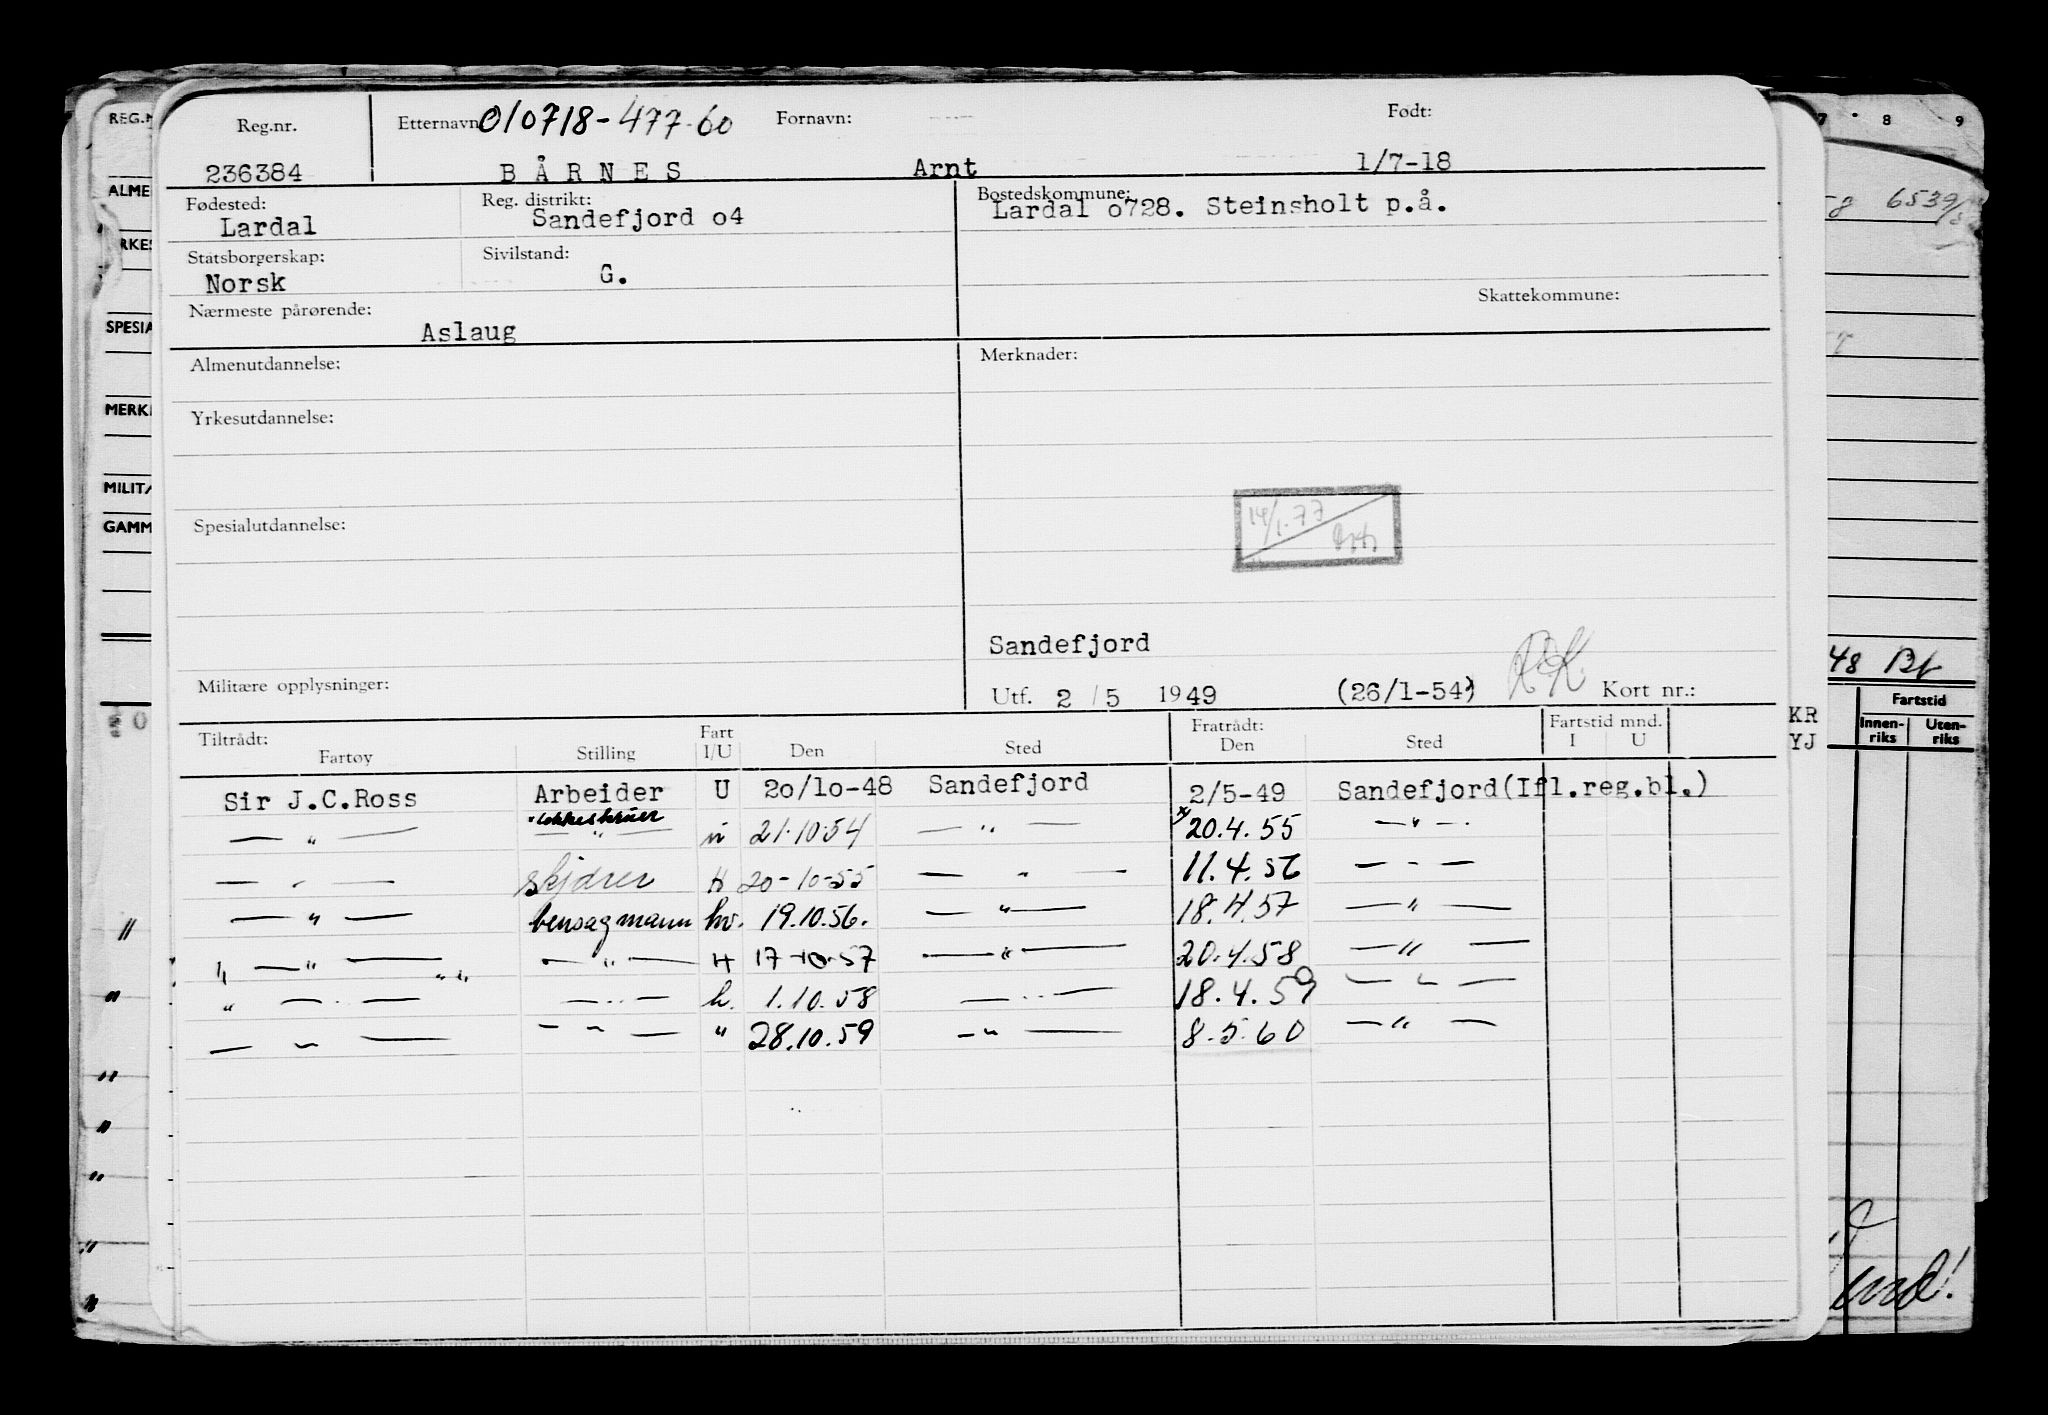 Reg.nr. Etternavn 010718-477-60 Fornavn: Født:
236384 BÅRNES Arnt 1/7-18
Fødested: Reg. distrikt: Bostedskommune:
Lardal Sandefjord o4 Lardal o728. Steinsholt p.å.
Statsborgerskap: Sivilstand:
Norsk G.
Nærmeste pårørende: Skattekommune:
Aslaug
Almenutdannelse: Merknader:
Yrkesutdannelse:
14/1.77
Spesialutdannelse:
Sandefjord
Militære opplysninger: Utf. 2/5 1949 (26/1-54) Kort nr.:
Tiltrådt: Fart Fratrådt: Fartstid mnd.
Fartøy Stilling I/U Den Sted Den Sted I U
Sir J.C.Ross Arbeider U 20/10-48 Sandefjord 2/5-49 Sandefjord(Ifl.reg.bl.)
— " — — " — 21.10.54 — " — 20.4.55 — " —
— " — skjærer H 20-10-55 — " — 11.4.56 — " —
— " — bensagmann hv. 19.10.56. — " — 18.4.57 — " —
— " — — " — H 17-10-57 — " — 20.4.58 — " —
" — " — — " — h. 1.10.58 — " — 18.4.59 — " —
— " — — " — " 28.10.59 — " — 8.5.60 — " —
REG.N
ALME
RKES
SPESIA
MERK
MILIT
GAMM
7 8 9
6539
48
Fartstid
Innen-
riks
Uten-
riks
KR
YJ